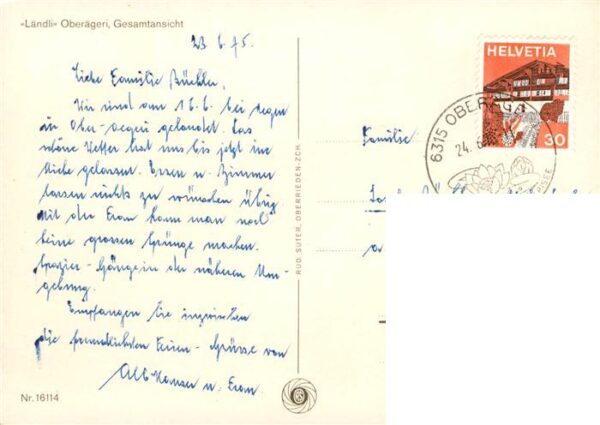 «Ländli» Oberägeri, Gesamtansicht
23. 6. 75.
Liebe Familie
Wir sind am 16.6. bei Regen
in Ober-Aegeri gelandet. Das
schöne Wetter hat uns bis jetzt im
Stiche gelassen. Essen u. Zimmer
lassen nichts zu wünschen übrig
Mit der Frau kann man noch
keine grossen Sprünge machen.
Spazier-Gänge in der näheren Um-
gebung.
Empfangen Sie inzwischen
die freundlichsten Ferien-Grüsse von
u. Frau.
Nr. 16114
RUD. SUTER, OBERRIEDEN-ZCH.
HELVETIA
30
6315 OBERÄGERI
24. 6.
Familie